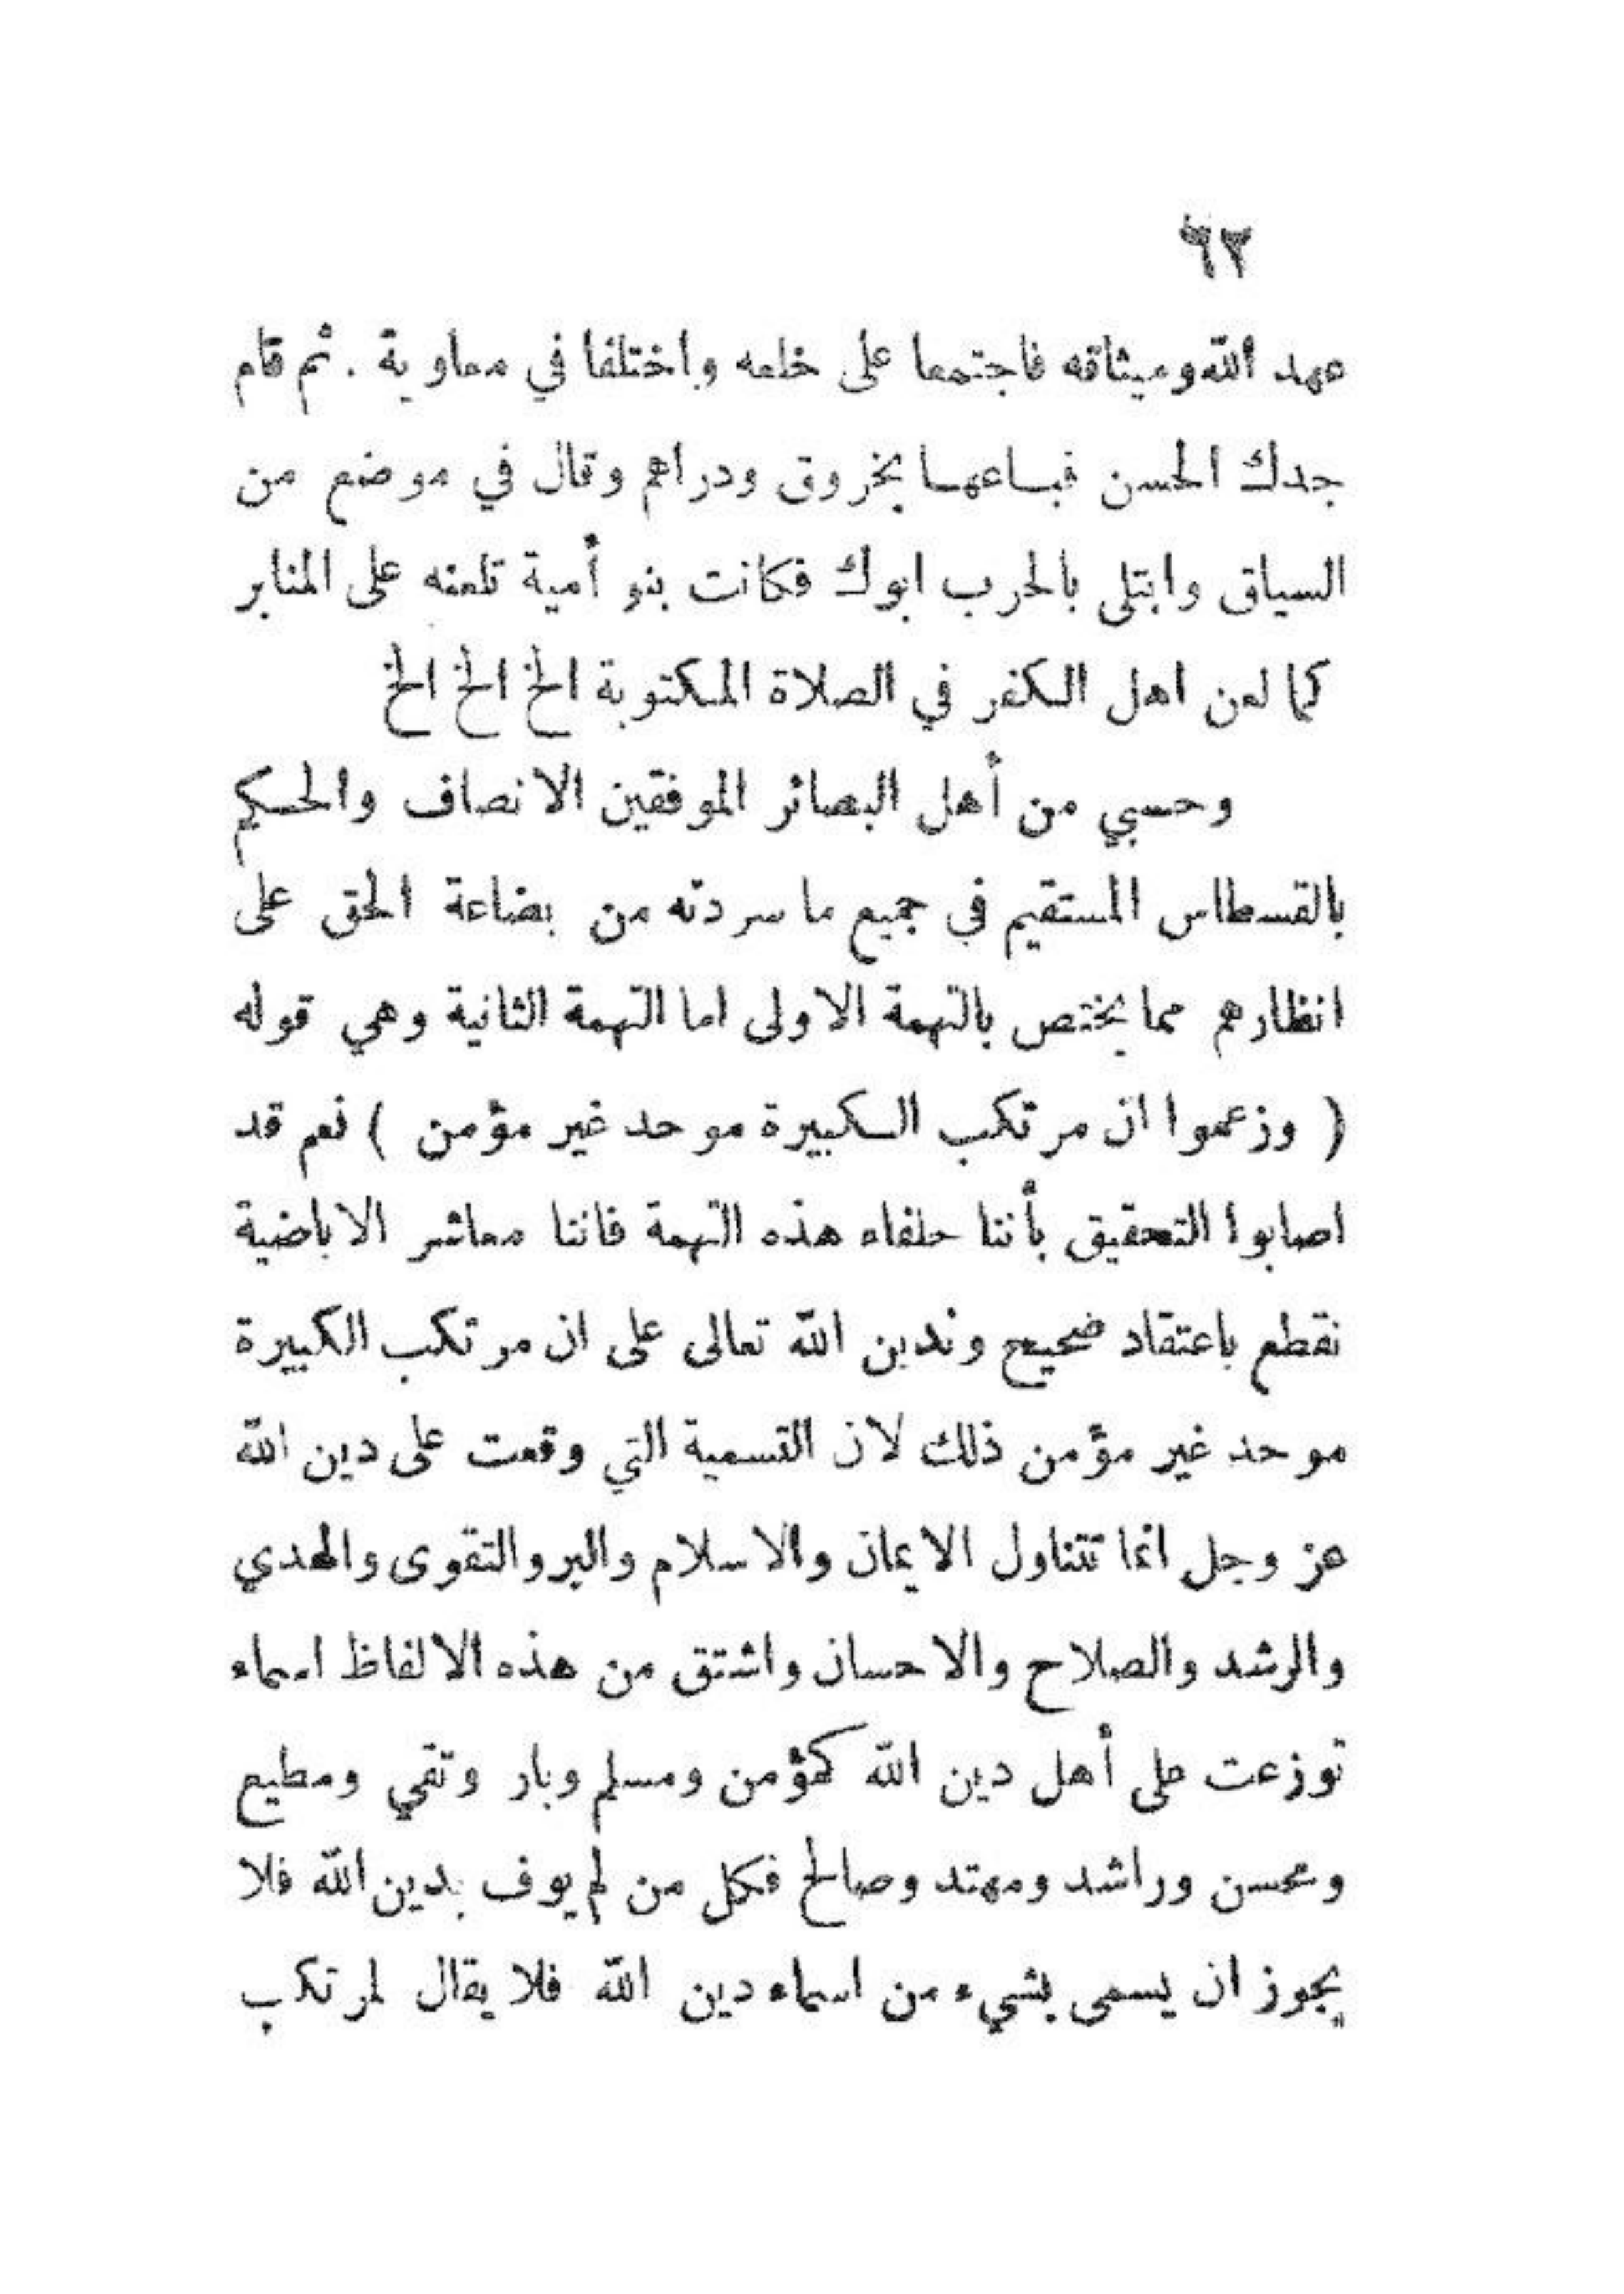 ٦٢
عهد الله وميثاقه فاجتمعا على خلعه واختلفا في معاوية . ثم قام
جدك الحسن فباعها بخروق ودراهم وقال في موضع من
السياق وابتلي بالحرب ابوك فكانت بنو أمية تلعنه على المنابر
كما لعن اهل الكفر في الصلاة المكتوبة الخ الخ الخ
وحسبي من أهل البصائر الموفقين الانصاف والحكم
بالقسطاس المستقيم في جميع ما سردته من بضاعة الحق على
انظارهم مما يختص بالتهمة الاولى اما التهمة الثانية وهي قوله
( وزعموا ان مرتكب الكبيرة موحد غير مؤمن ) نعم قد
اصابوا التحقيق بأننا حلفاء هذه التهمة فاننا معاشر الاباضية
نقطع باعتقاد صحيح وندين الله تعالى على ان مرتكب الكبيرة
موحد غير مؤمن ذلك لان التسمية التي وقعت على دين الله
عز وجل انما تتناول الايمان والاسلام والبر والتقوى والهدي
والرشد والصلاح والاحسان واشتق من هذه الالفاظ اسماء
توزعت على أهل دين الله كمؤمن ومسلم وبار وتقي ومطيع
ومحسن وراشد ومهتد وصالح فكل من لم يوف بدين الله فلا
يجوز ان يسمى بشيء من اسماء دين الله فلا يقال لمرتكب